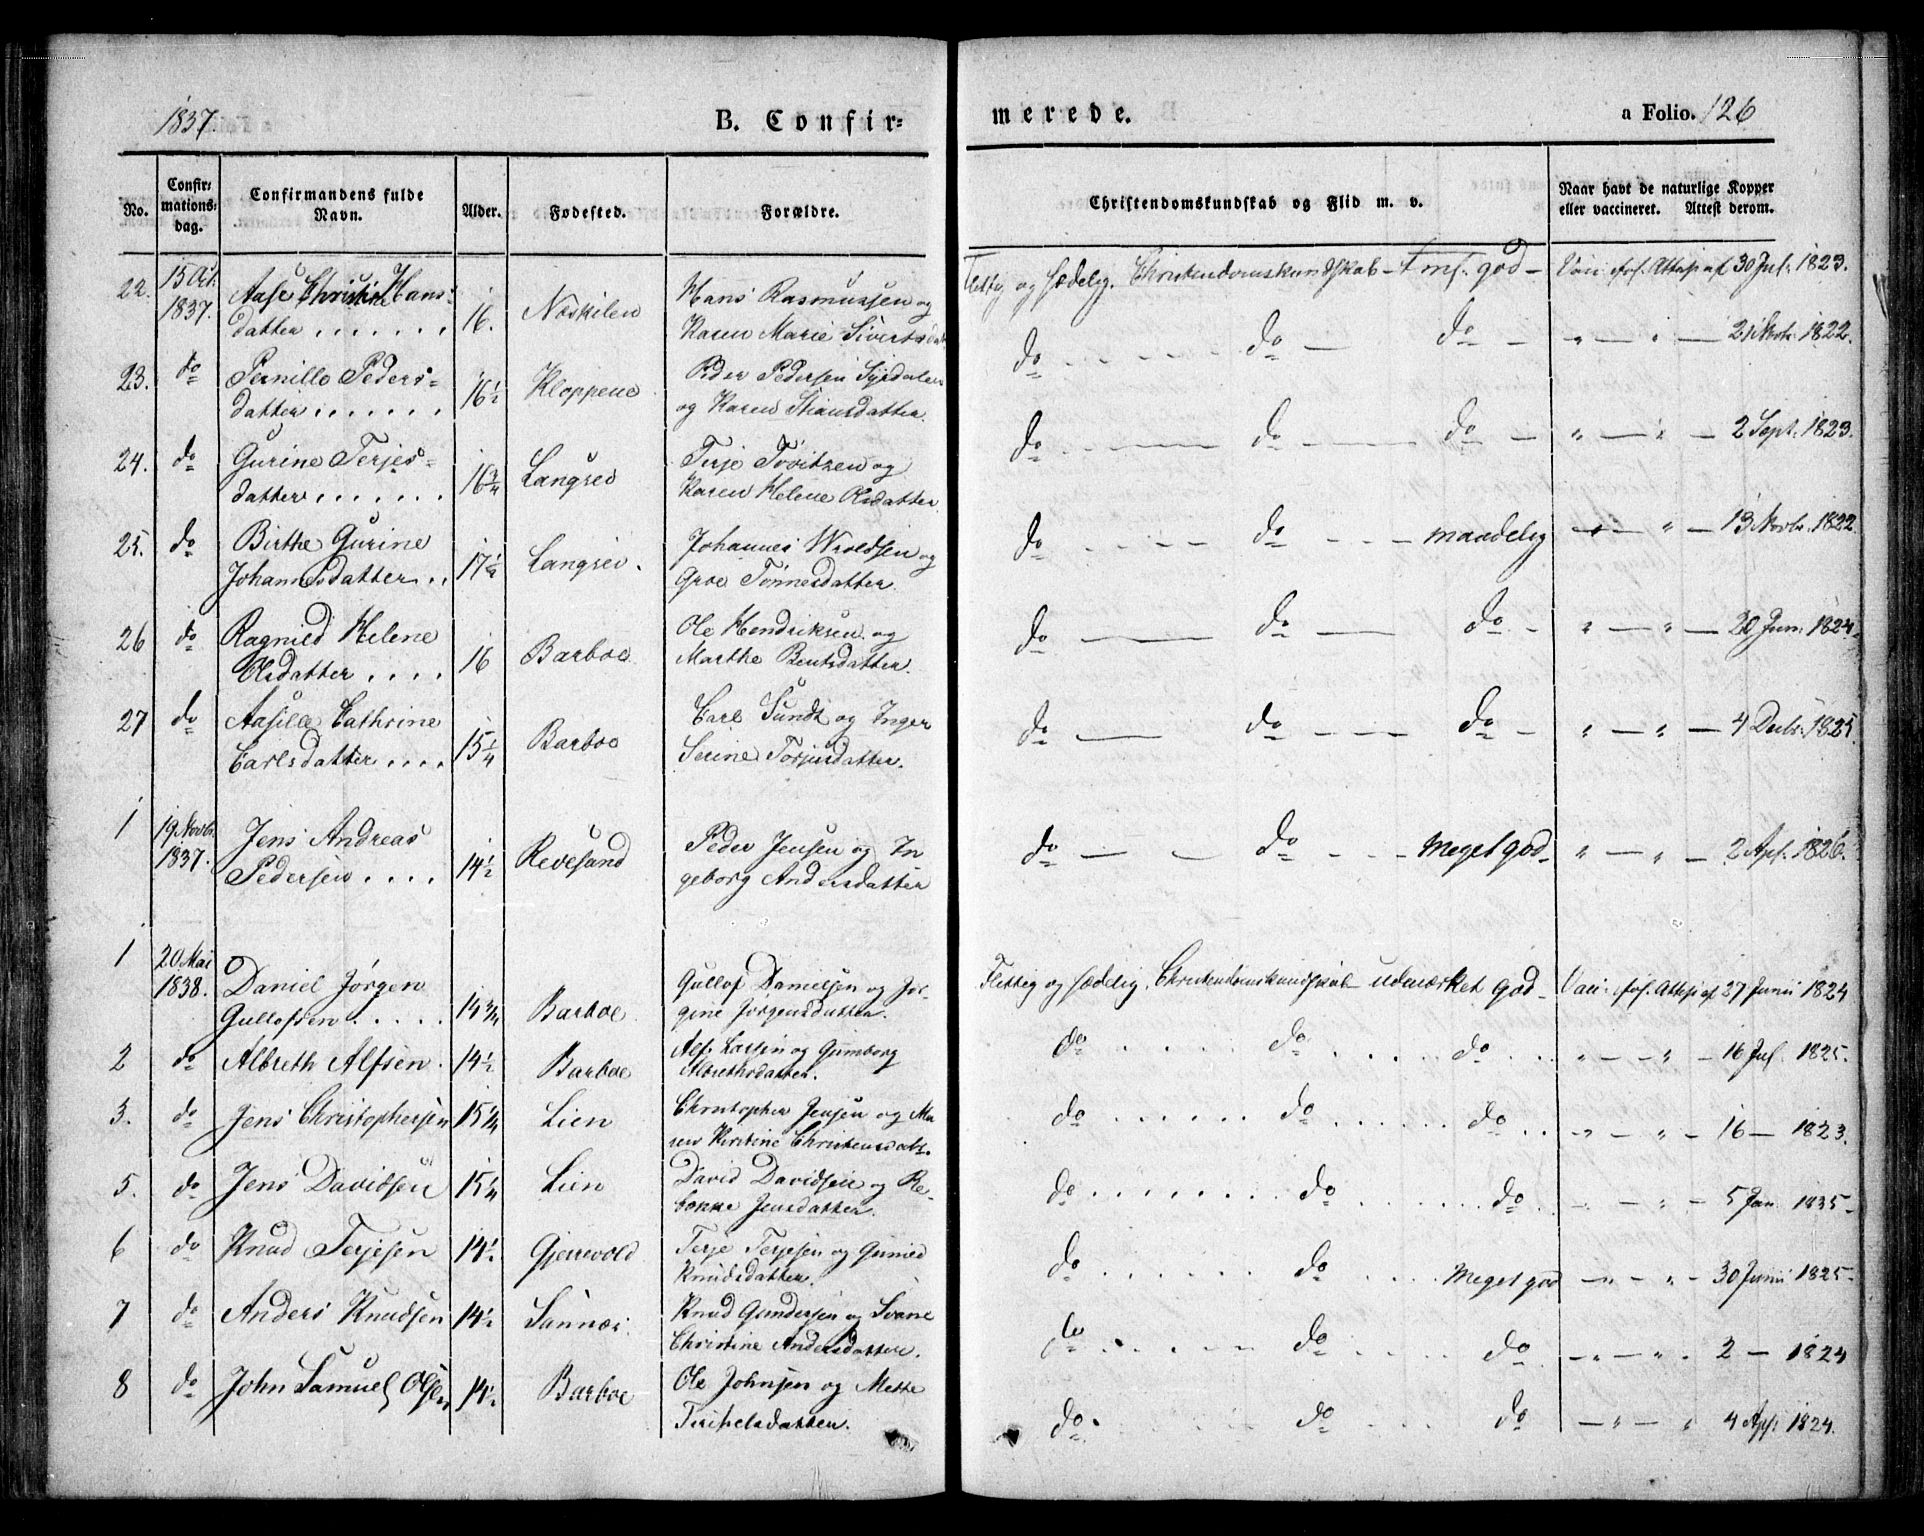 1837.
B. Confir-
merede.
a Folio. 126
No.
Confir-
mations-
dag.
Confirmandens fulde
Navn.
Alder.
Fødested.
Forældre.
Christendomskundskab og Flid m. v.
Naar havt de naturlige Kopper
eller vaccineret. Attest derom.
22. 15 Oct. 1837. Aase Christine Hans-
datter . . . . . . . 16. Neskilen
Hans Rasmussen og
Karen Marie Sivertsdat
Flittig og sædelig. Christendomskundskab god — 30 Jul. 1823.
23. do Pernille Peders-
datter . . . . . . . 16½ Kloppene
Peder Pedersen
og Karen Stiansdatter
do — do — do — " — " — 21 Novbr. 1822.
24. do Gurine Terjes-
datter . . . . . . . 16¾ Langsev
Terje Tovitzen og
Karen Helene Olsdatter
do — do — do — " — " — 2 Sept. 1823.
25. do Birthe Gurine
Johannesdatter . . 17¼ Langsev.
Johannes Wroldsen og
Groe Tønnesdatter
do — do — maadelig — " — 13 Novbr. 1822
26 do Ragnild Helene
Olsdatter . . . . 16 Barboe
Ole Hendriksen og
Marthe Bentsdatter
do — do — do — " — " — 20 Jun. 1824
27 do Aasille Cathrine
Carlsdatter . . . . 15¼ Barboe
Carl Sundt og Inger
Serine Torjusdatter.
do — do — do — " — " — 4 Decbr. 1825.
1 19 Novbr. 1837. Jens Andreas
Pedersen . . . . 14½ Revesand
Peder Jensen og In
geborg Andersdatter
do — do — meget god — " — " — 2 Apr. 1826.
1 20 Mai 1838. Daniel Jørgen
Gullofsen . . . . . 14¾ Barboe
Gullof Danielsen og Jør-
gine Jørgensdatter.
Flittig og sædelig. Christendomskundskab udmærket god — 27 Junii 1824
2 do Albreth Alfsen. 14½ Barboe
Alf Larsen og Gunborg
Albrethsdatter.
do do do " — " — 16 Jul. 1825.
3. do Jens Christophersen 15¼ Lien
Christopher Jensen og Ma
ren Kirstine Christensdatr.
do do do " — " — 16 — 1823.
5. do Jens Davidsen 15¼ Lien
David Davidsen og Re-
bekke Jensdatter.
do do do " — " — 5 Jan 1835
6 do Knud Terjesen 14½ Gjerrvold
Terje Terjesen og Gunild
Knudsdatter.
do do meget god — " — " — 30 Junii 1825
7 do Anders Knudsen 14½ Sannæs
Knud Gundersen og Svane
Christine Andersdatter.
do do do — " — " — 2 — 1824
8 do John Samuel Olsen 14½ Barboe
Ole Johnsen og Mette
do do do — " — " 4 Apr. 1824.